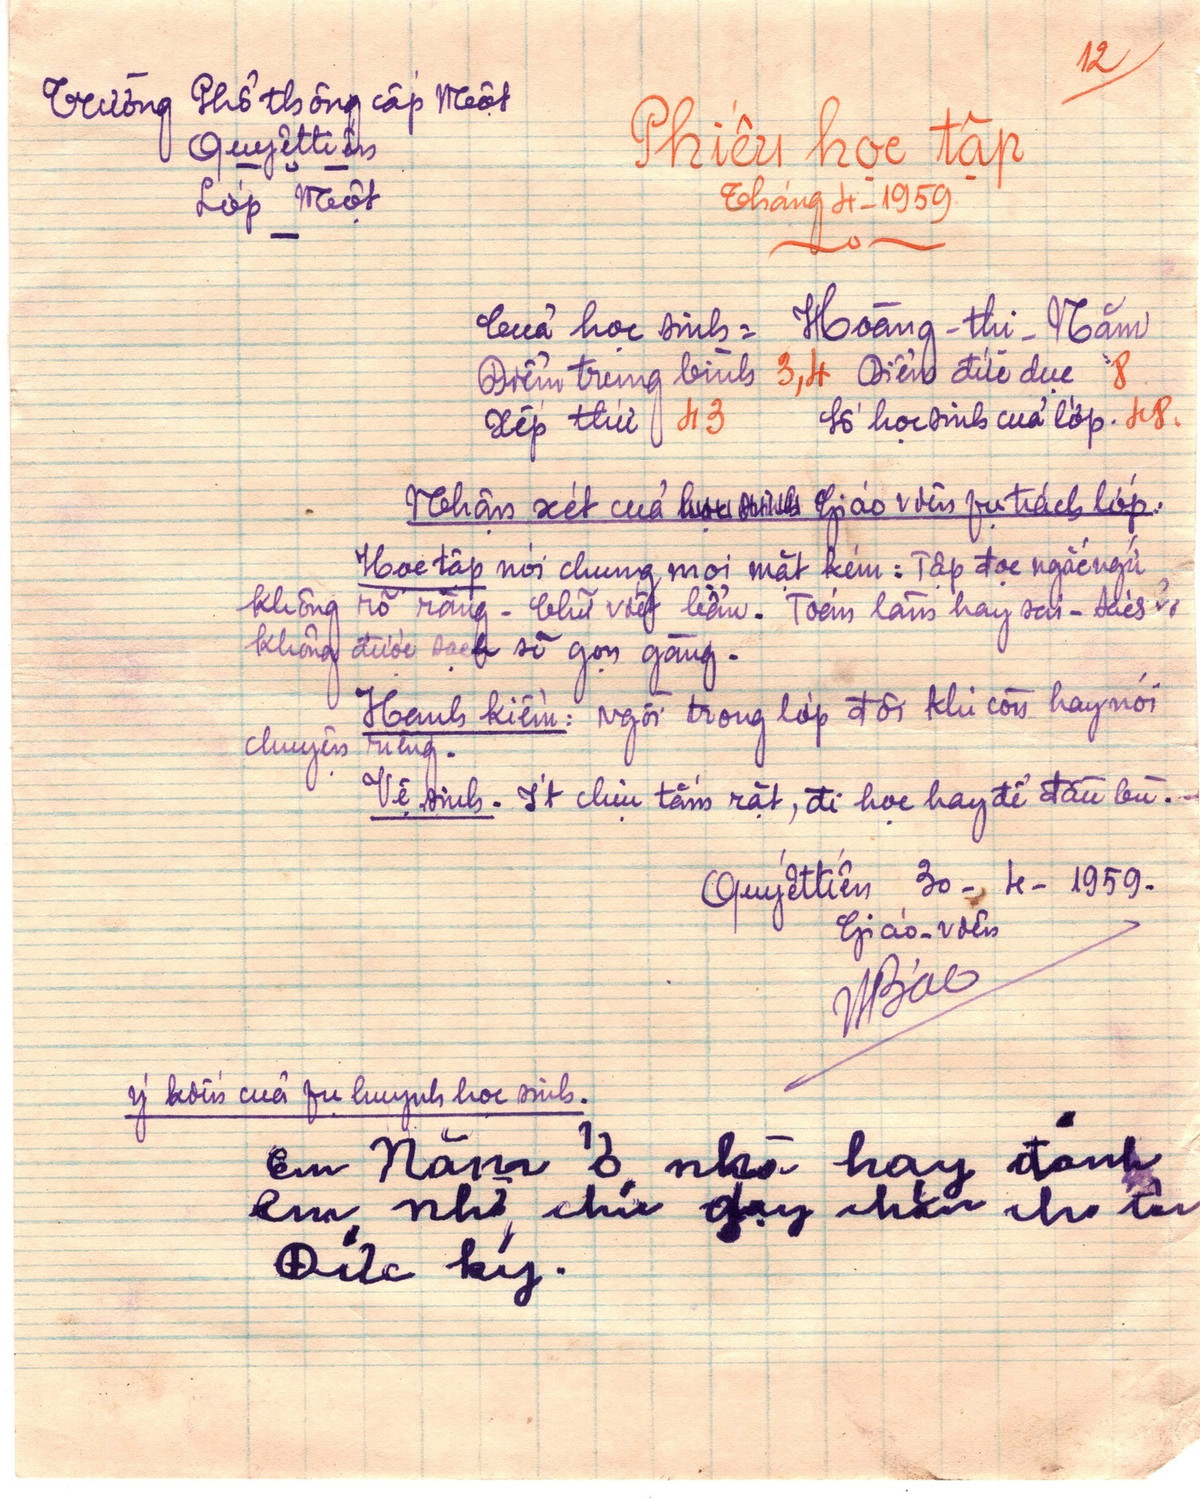 12
Trường Phổ thông cấp Một
Quyết tiến
Lớp Một
Phiếu học tập
Tháng 4-1959
Của học sinh: Hoàng-thị-Năm
Điểm trung bình 3,4 Điểm đức dục 8
Xếp thứ 43 Số học sinh của lớp. 48.
Nhận xét của học sinh Giáo viên fụ trách lớp.
Học tập nói chung mọi mặt kém: Tập đọc ngắc ngứ
không rõ ràng - Chữ viết bẩn. Toán làm hay sai - Sách vở
không được sạch sẽ gọn gàng.
Hạnh kiểm: Ngồi trong lớp đôi khi còn hay nói
chuyện riêng.
Vệ sinh. Ít chịu tắm rặt, đi học hay để đầu bù.
Quyết tiến 30-4-1959.
Giáo-viên
Báo
Ý kiến của fụ huynh học sinh.
em Năm ở nhà hay đánh
em, nhờ chú dạy cho
Đức ký.